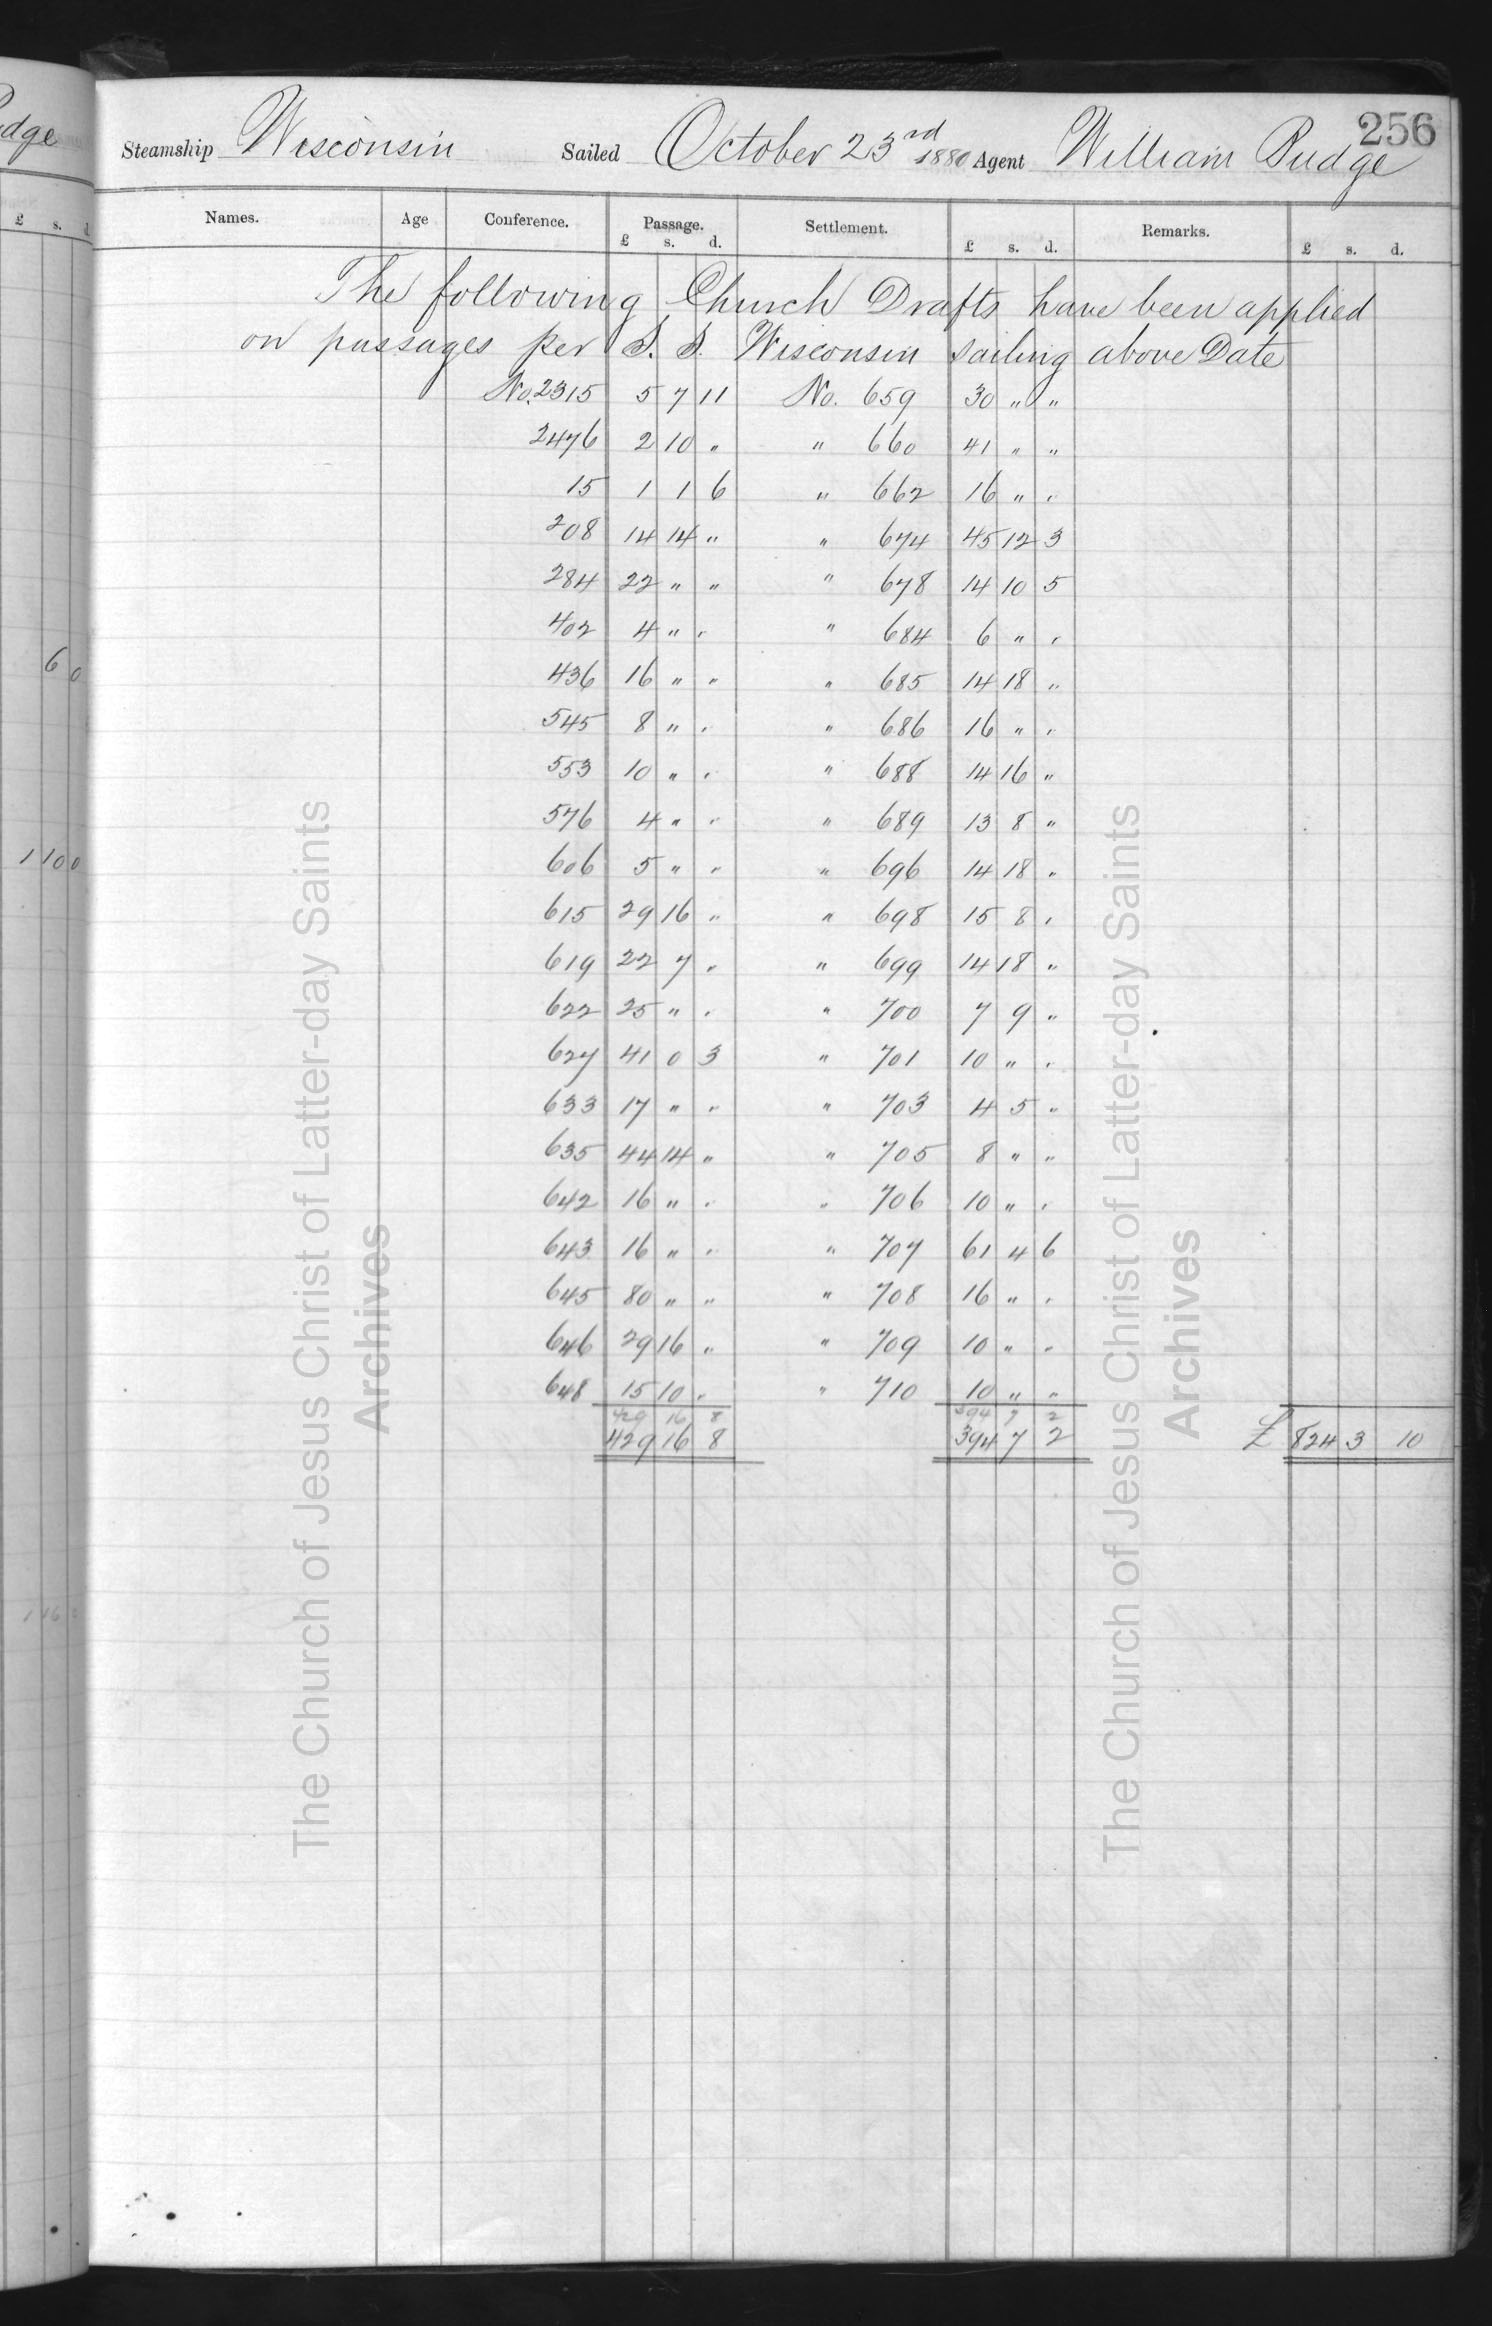 256
Steamship Wisconsin Sailed October 23rd 1880 Agent William Budge
Names. Age Conference. Passage. Settlement. Remarks.
£ s. d. £ s. d. £ s. d.
The following Church Drafts have been applied
on passages per S. S. Wisconsin sailing above Date
No. 2315 5 7 11 No. 659 30 " "
2476 2 10 " " 660 41 " "
15 1 1 6 " 662 16 " "
208 14 14 " " 674 45 12 3
284 22 " " " 678 14 10 5
402 4 " " " 684 6 " "
436 16 " " " 685 14 18 "
545 8 " " " 686 16 " "
553 10 " " " 688 14 16 "
576 4 " " " 689 13 8 "
606 5 " " " 696 14 18 "
615 29 16 " " 698 15 8 "
619 22 7 " " 699 14 18 "
622 25 " " " 700 7 9 "
627 41 0 3 " 701 10 " "
633 17 " " " 703 4 5 "
635 44 14 " " 705 8 " "
642 16 " " " 706 10 " "
643 16 " " " 707 61 4 6
645 80 " " " 708 16 " "
646 29 16 " " 709 10 " "
648 15 10 " " 710 10 " "
429 16 8 394 7 2
429 16 8 394 7 2 £ 824 3 10
dge
£ s. d.
6 0
1 10 0
1 16 0
The Church of Jesus Christ of Latter-day Saints
Archives
The Church of Jesus Christ of Latter-day Saints
Archives